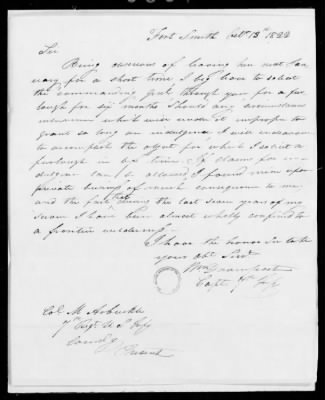 Fort Smith Octr 13th 1822
Sir
Being desirous of leaving here next Jan
uary for a short time I beg leave to solicit
the Commanding Genl. through you for a fur
lough for six months should any circumstance
intervene which will render it improper to
grant so long an indulgence I will endeavour
to accomplish the object for which I solicit a
furlough in less time. If claims for in
dulgence can be allowed, I found mine upon
private business of much consequence to me,
and the fact that during the last seven years of my
I have been almost wholly confined to
a frontier wilderness
I have the honor Sir to be
your obt Servt
Wm
Capt. 7th Infy
Col. M Arbuckle
7th Regt U S Infy
Comdg
Present